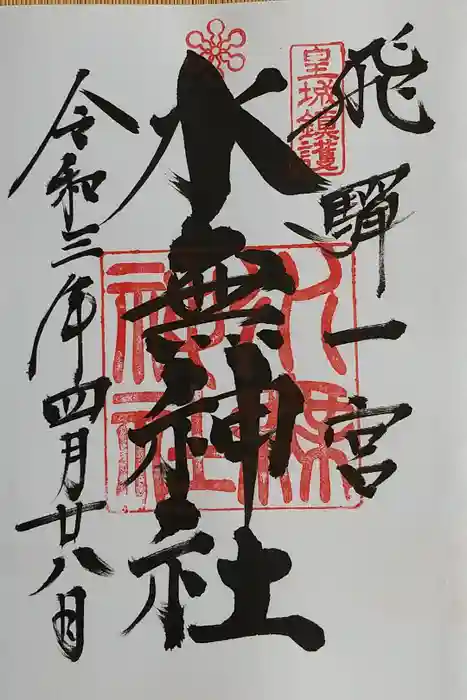 皇城鎮護
飛騨一宮
水無神社
令和三年四月廿八日